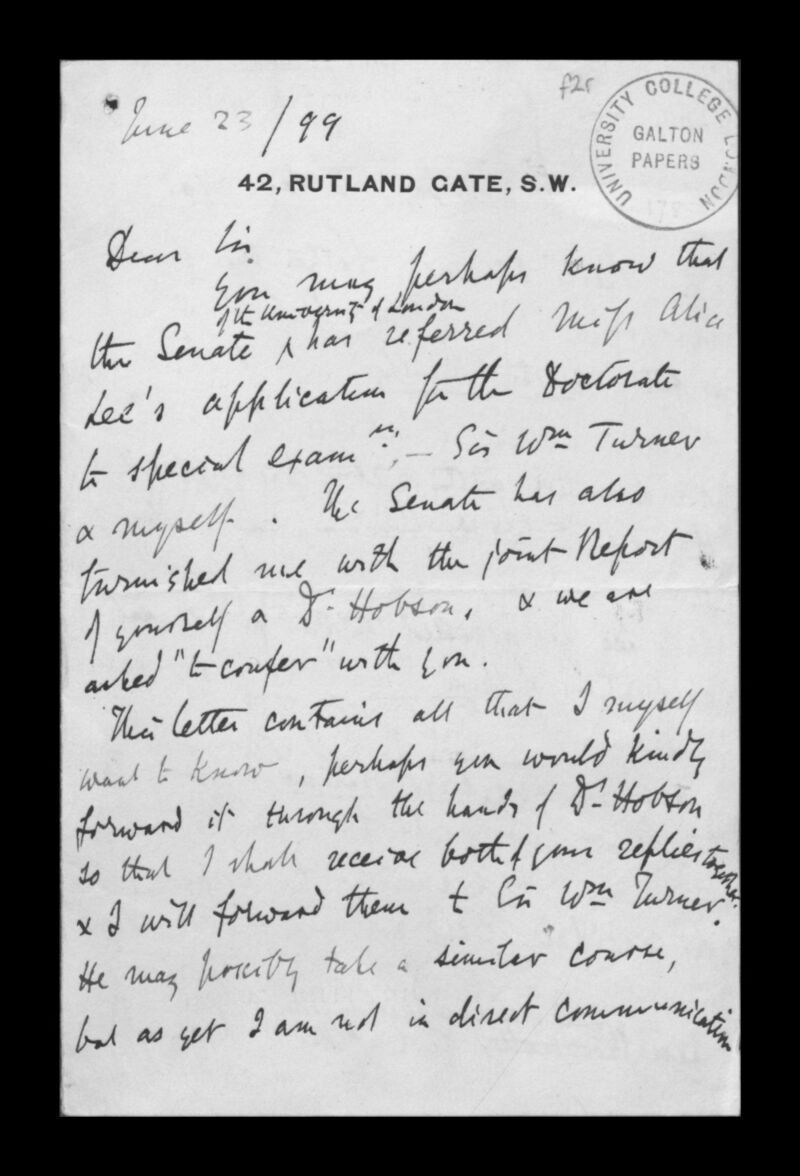 f2r
UNIVERSITY COLLEGE LONDON
GALTON
PAPERS
June 23/99
42, RUTLAND GATE, S.W.
Dear Sir
you may perhaps know that
of the University of London
the Senate ^ has referred Miss Alice
Lee's application for the Doctorate
to special examrs, — Sir Wm Turner
& myself. The Senate has also
furnished me with the joint Report
of yourself & Dr. Hobson, & we are
asked "to confer" with you.
This letter contains all that I myself
want to know, perhaps you would kindly
forward it through the hands of Dr. Hobson
so that I shall receive both of your replies together.
& I will forward them to Sir Wm Turner.
He may possibly take a similar course,
but as yet I am not in direct communication